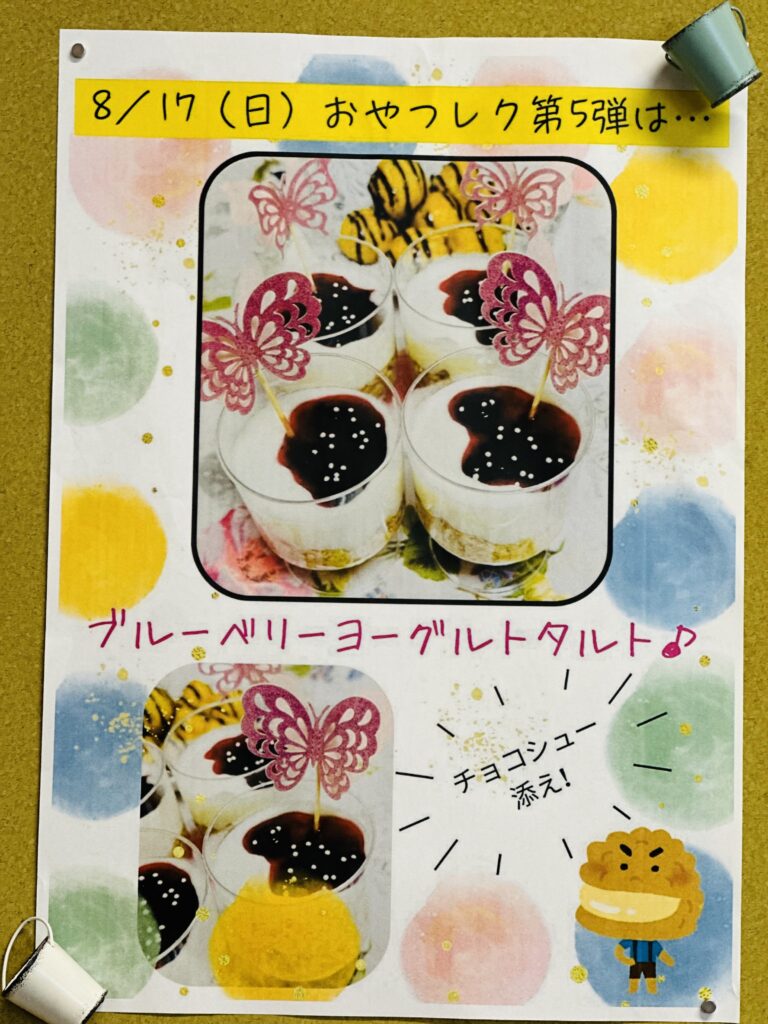 8/17(日)おやつレク第5弾は…
ブルーベリーヨーグルトタルト♪
チョコシュー
添え!